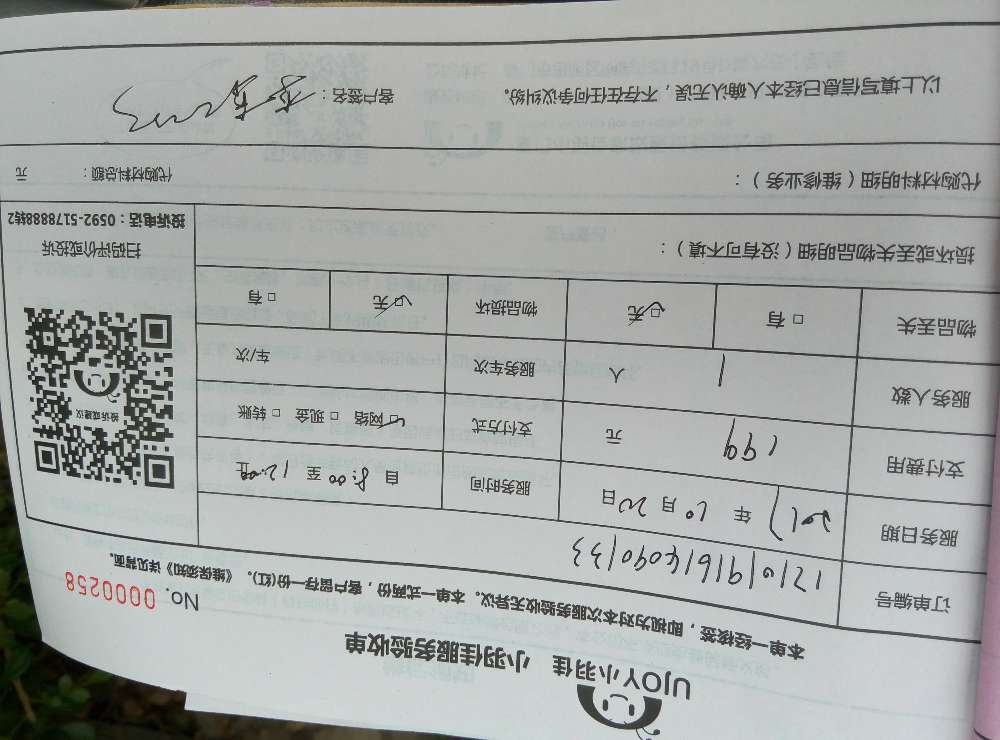 UJOY小羽佳 小羽佳服务验收单
No. 0000258
本单一经核签，即视为对本次服务验收无异议。本单一式两份，客户留存一份(红)。《维保须知》详见背面。
订单编号 171019161409040133
服务日期 2017 年 10 月 20 日 服务时间 自 8:00 至 12:00 止
支付费用 199 元 支付方式 ☑ 网络 □ 现金 □ 转账
服务人数 1 人 服务车次 车/次
物品丢失 □ 有 ☑ 无 物品损坏 ☑ 无 □ 有
投诉或建议
扫码评价或投诉
投诉电话：0592-5178888转2
损坏或丢失物品明细（没有可不填）：
代购材料明细（维修业务）： 代购材料总额： 元
以上填写信息已经本人确认无误，不存在任何争议纠纷。 客户签名：